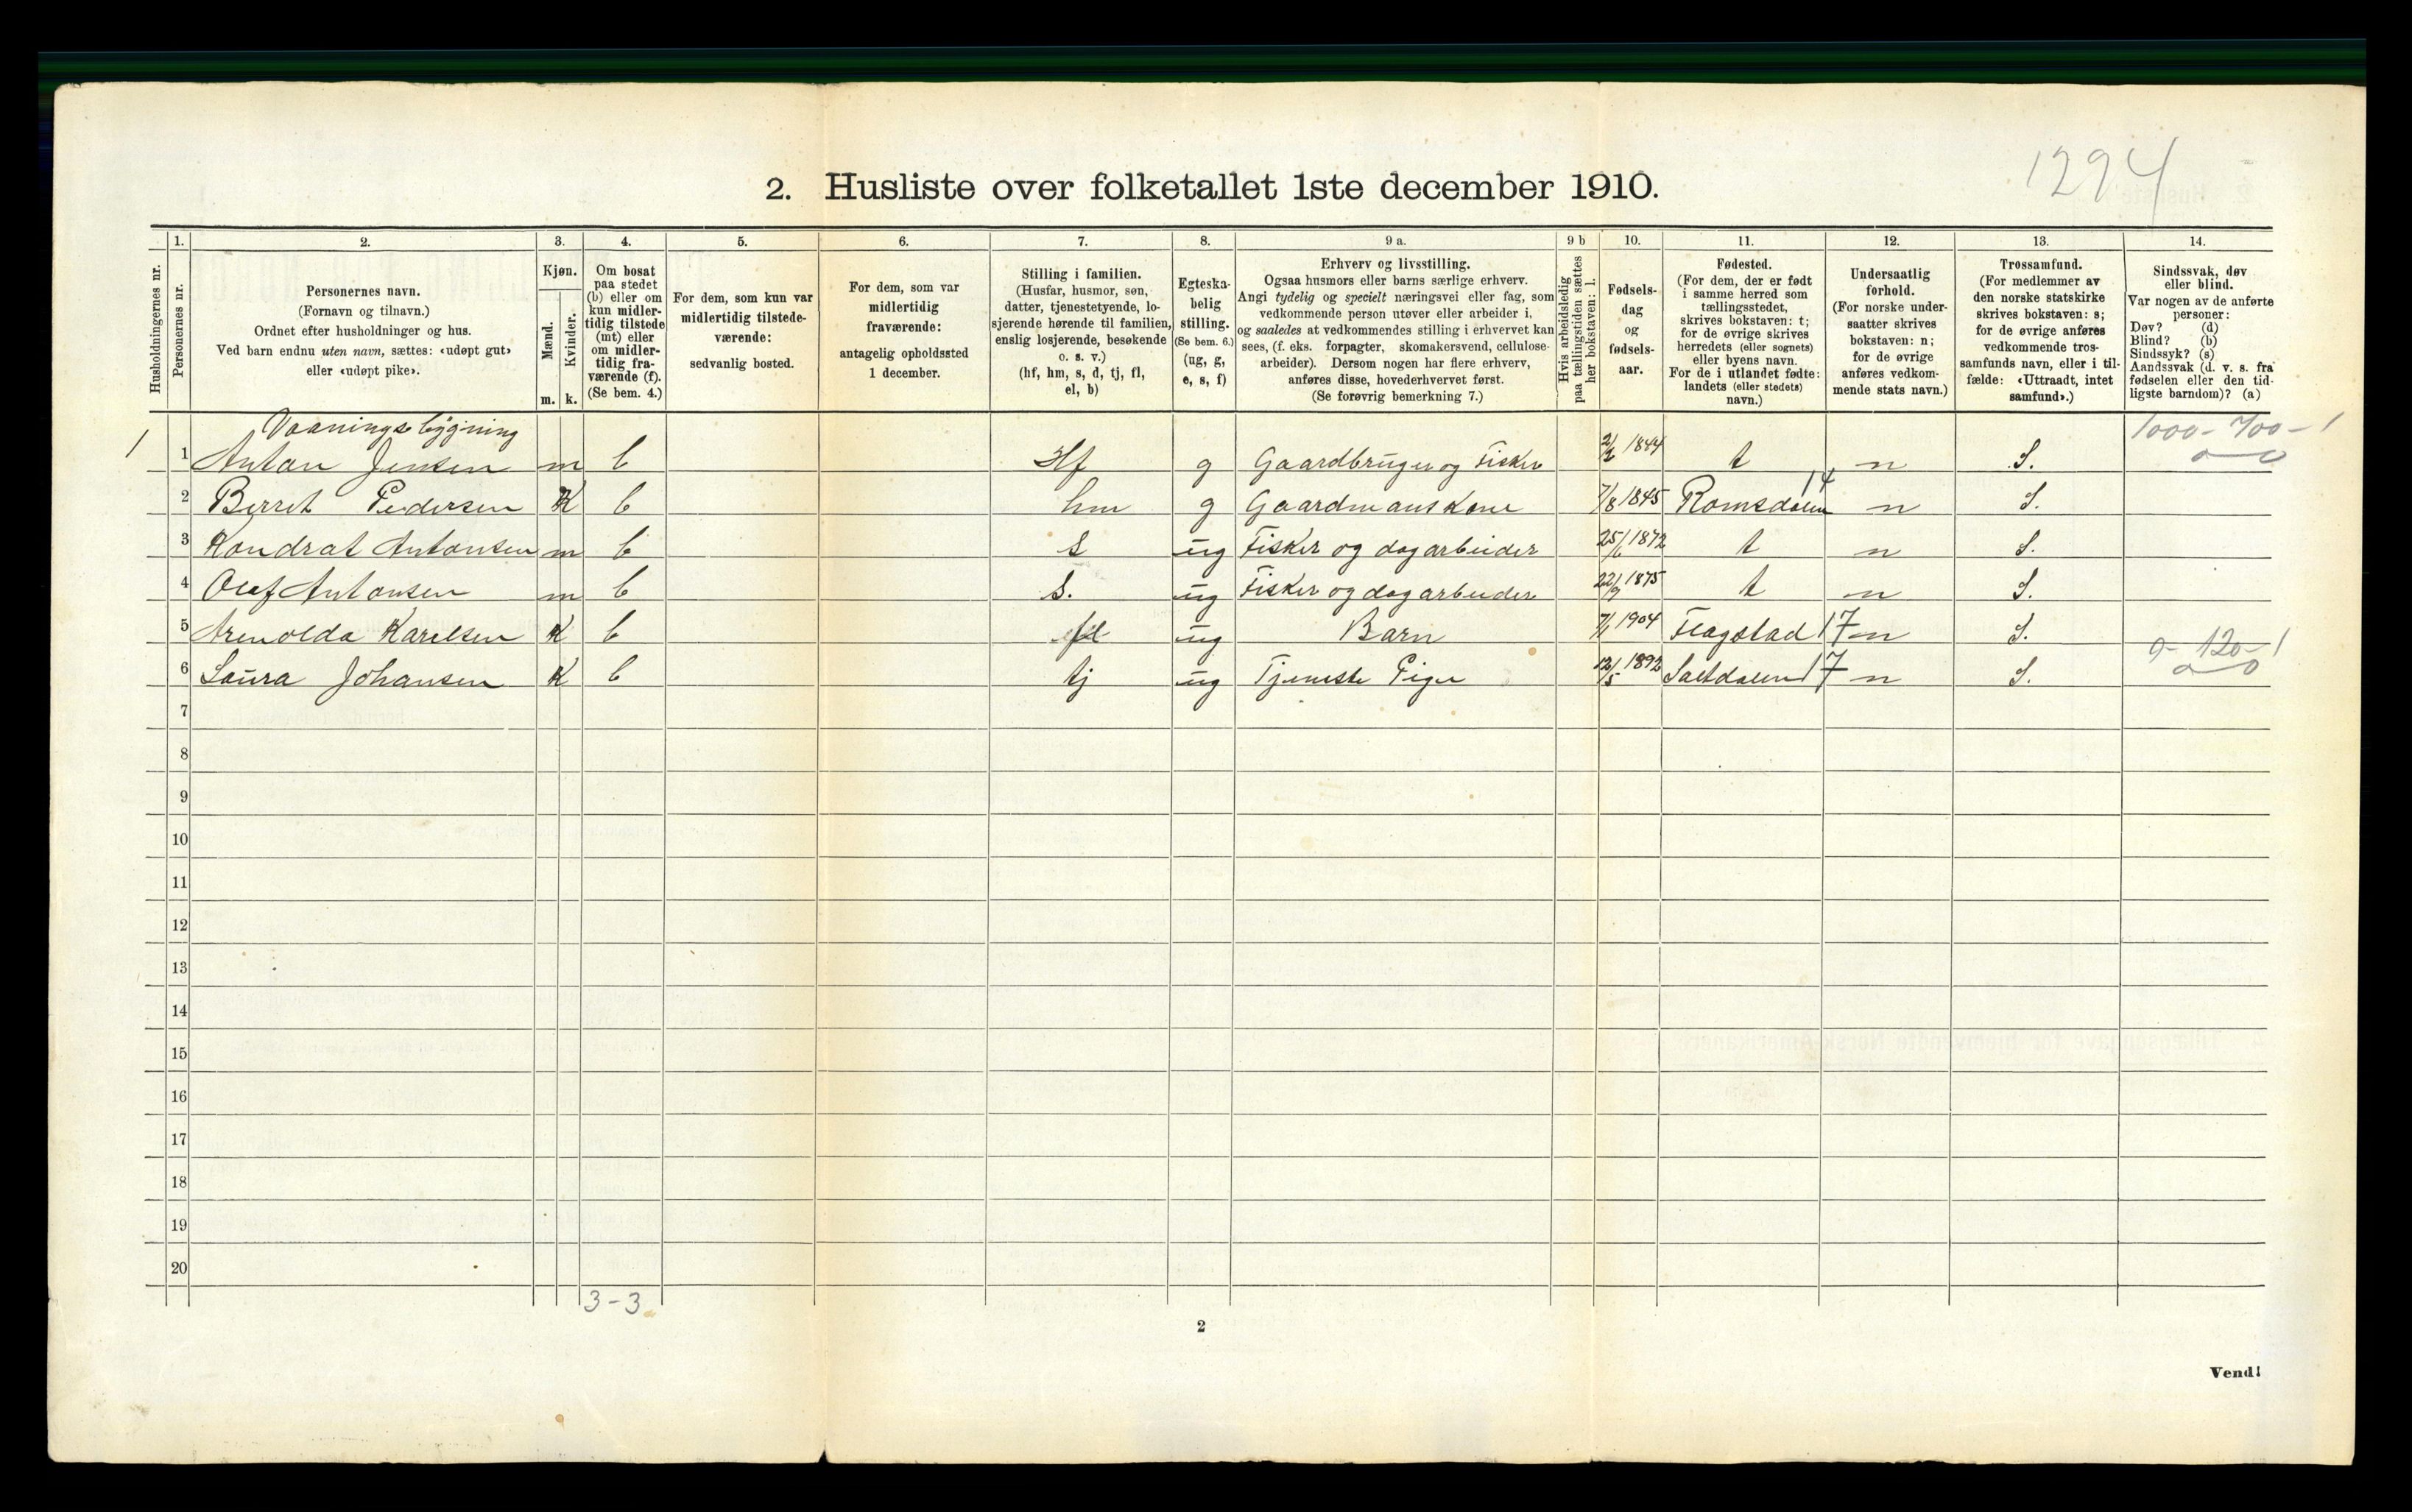 1294
2. Husliste over folketallet 1ste december 1910.
Husholdningernes nr.
1. Personernes nr.
2. Personernes navn.
(Fornavn og tilnavn.)
Ordnet efter husholdninger og hus.
Ved barn endnu uten navn, sættes: «udøpt gut»
eller «udøpt pike».
3. Kjøn.
Mænd. Kvinder.
m. k.
4. Om bosat
paa stedet
(b) eller om
kun midler-
tidig tilstede
(mt) eller
om midler-
tidig fra-
værende (f).
(Se bem. 4.)
5. For dem, som kun var
midlertidig tilstede-
værende:
sedvanlig bosted.
6. For dem, som var
midlertidig
fraværende:
antagelig opholdssted
1 december.
7. Stilling i familien.
(Husfar, husmor, søn,
datter, tjenestetyende, lo-
sjerende hørende til familien,
enslig losjerende, besøkende
o. s. v.)
(hf, hm, s, d, tj, fl,
el, b)
8. Egteska-
belig
stilling.
(Se bem. 6.)
(ug, g,
e, s, f)
9 a. Erhverv og livsstilling.
Ogsaa husmors eller barns særlige erhverv.
Angi tydelig og specielt næringsvei eller fag, som
vedkommende person utøver eller arbeider i,
og saaledes at vedkommendes stilling i erhvervet kan
sees, (f. eks. forpagter, skomakersvend, cellulose-
arbeider). Dersom nogen har flere erhverv,
anføres disse, hovederhvervet først.
(Se forøvrig bemerkning 7.)
9 b Hvis arbeidsledig
paa tællingstiden sættes
her bokstaven: l.
10. Fødsels-
dag
og
fødsels-
aar.
11. Fødested.
(For dem, der er født
i samme herred som
tællingsstedet,
skrives bokstaven: t;
for de øvrige skrives
herredets (eller sognets)
eller byens navn.
For de i utlandet fødte:
landets (eller stedets)
navn.)
12. Undersaatlig
forhold.
(For norske under-
saatter skrives
bokstaven: n;
for de øvrige
anføres vedkom-
mende stats navn.)
13. Trossamfund.
(For medlemmer av
den norske statskirke
skrives bokstaven: s;
for de øvrige anføres
vedkommende tros-
samfunds navn, eller i til-
fælde: «Uttraadt, intet
samfund».)
14. Sindssvak, døv
eller blind.
Var nogen av de anførte
personer:
Døv? (d)
Blind? (b)
Sindssyk? (s)
Aandssvak (d. v. s. fra
fødselen eller den tid-
ligste barndom)? (a)
Vaaningsbygning 1000-700-1
1 1 Anton Jensen m b Hf g Gaardbruger og Fisker 1844 t n S.
2 Berret Pedersen K b hm g Gaardmanskone 7/8 1845 Romsdalen 14 n S.
3 Kondrat Antonsen m b s ug Fisker og dagarbeider 25/6 1872 t n S.
4 Olaf Antonsen m b s. ug Fisker og dagarbeider 22/9 1875 t n S.
5 Arenolda Karelsen K b fl ug Barn 7/1 1904 Flagstad 17 n S.
0-120-1
6 Laura Johansen K b tj ug Tjeneste Pige 12/5 1892 Saltdalen 17 n S.
7
8
9
10
11
12
13
14
15
16
17
18
19
20
3-3
2
Vend!